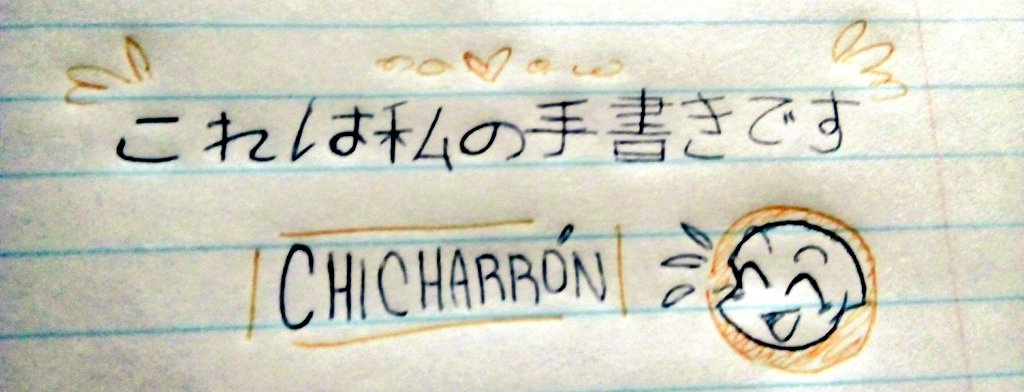 これは私の手書きです
CHICHARRÓN